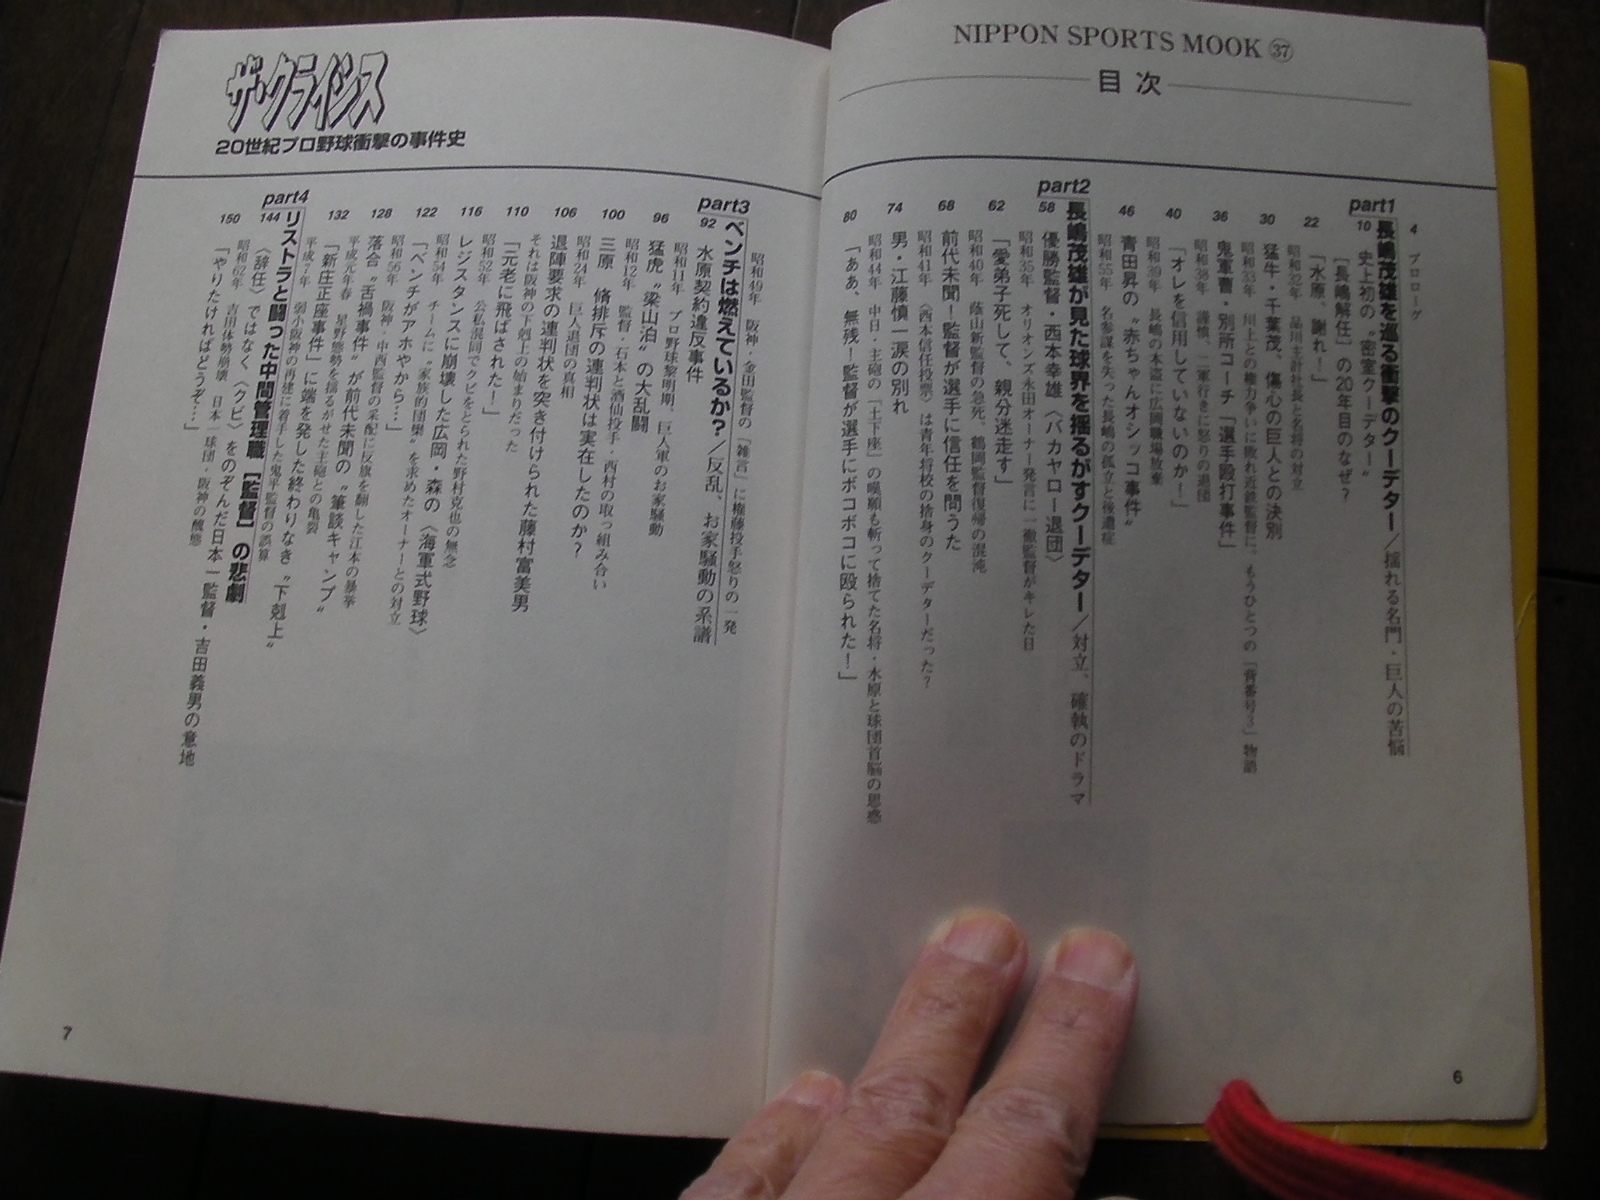 NIPPON SPORTS MOOK ㊲
目次
4
プロローグ
part1
長嶋茂雄を巡る衝撃のクーデター/揺れる名門・巨人の苦悩
10
史上初の〝密室クーデター〟
[長嶋解任]の20年目のなぜ?
22
「水原、謝れ!」
昭和32年 品川主計社長と名将の対立
30
猛牛・千葉茂、傷心の巨人との決別
昭和33年 川上との権力争いに敗れ近鉄監督に。もうひとつの「背番号3」物語
36
鬼軍曹・別所コーチ「選手殴打事件」
昭和38年 謹慎、二軍行きに怒りの退団
40
「オレを信用していないのか!」
昭和39年 長嶋の本盗に広岡職場放棄
46
青田昇の〝赤ちゃんオシッコ事件〟
昭和55年 名参謀を失った長嶋の孤立と後遺症
part2
長嶋茂雄が見た球界を揺るがすクーデター/対立、確執のドラマ
58
優勝監督・西本幸雄〈バカヤロー退団〉
昭和35年 オリオンズ永田オーナー発言に一徹監督がキレた日
62
「愛弟子死して、親分迷走す」
昭和40年 蔭山新監督の急死、鶴岡監督復帰の混沌
68
前代未聞!監督が選手に信任を問うた
昭和41年 〈西本信任投票〉は青年将校の捨身のクーデターだった?
74
男・江藤慎一涙の別れ
昭和44年 中日・主砲の「土下座」の嘆願も斬って捨てた名将・水原と球団首脳の思惑
80
「ああ、無残!監督が選手にボコボコに殴られた!」
ザ・クライシス
20世紀プロ野球衝撃の事件史
昭和49年 阪神・金田監督の『雑言』に権藤投手怒りの一発
part3
ベンチは燃えているか?/反乱、お家騒動の系譜
92
水原契約違反事件
昭和11年 プロ野球黎明期、巨人軍のお家騒動
96
猛虎〝梁山泊〟の大乱闘
昭和12年 監督・石本と酒仙投手・西村の取っ組み合い
100
三原 脩排斥の連判状は実在したのか?
昭和24年 巨人退団の真相
106
退陣要求の連判状を突き付けられた藤村富美男
それは阪神の下剋上の始まりだった
110
「元老に飛ばされた!」
昭和52年 公私混同でクビをとられた野村克也の無念
116
レジスタンスに崩壊した広岡・森の〈海軍式野球〉
昭和54年 チームに〝家族的団欒〟を求めたオーナーとの対立
122
「ベンチがアホやから…」
昭和56年 阪神・中西監督の采配に反旗を翻した江本の暴挙
128
落合〝舌禍事件〟が前代未聞の〝筆談キャンプ〟
平成元年春 星野態勢を揺るがせた主砲との亀裂
132
「新庄正座事件」に端を発した終わりなき〝下剋上〟
平成7年 弱小阪神の再建に着手した鬼平監督の誤算
part4
リストラと闘った中間管理職【監督】の悲劇
144
〈辞任〉ではなく〈クビ〉をのぞんだ日本一監督・吉田義男の意地
昭和62年 吉田体勢崩壊 日本一球団・阪神の醜態
150
「やりたければどうぞ…」
6
7